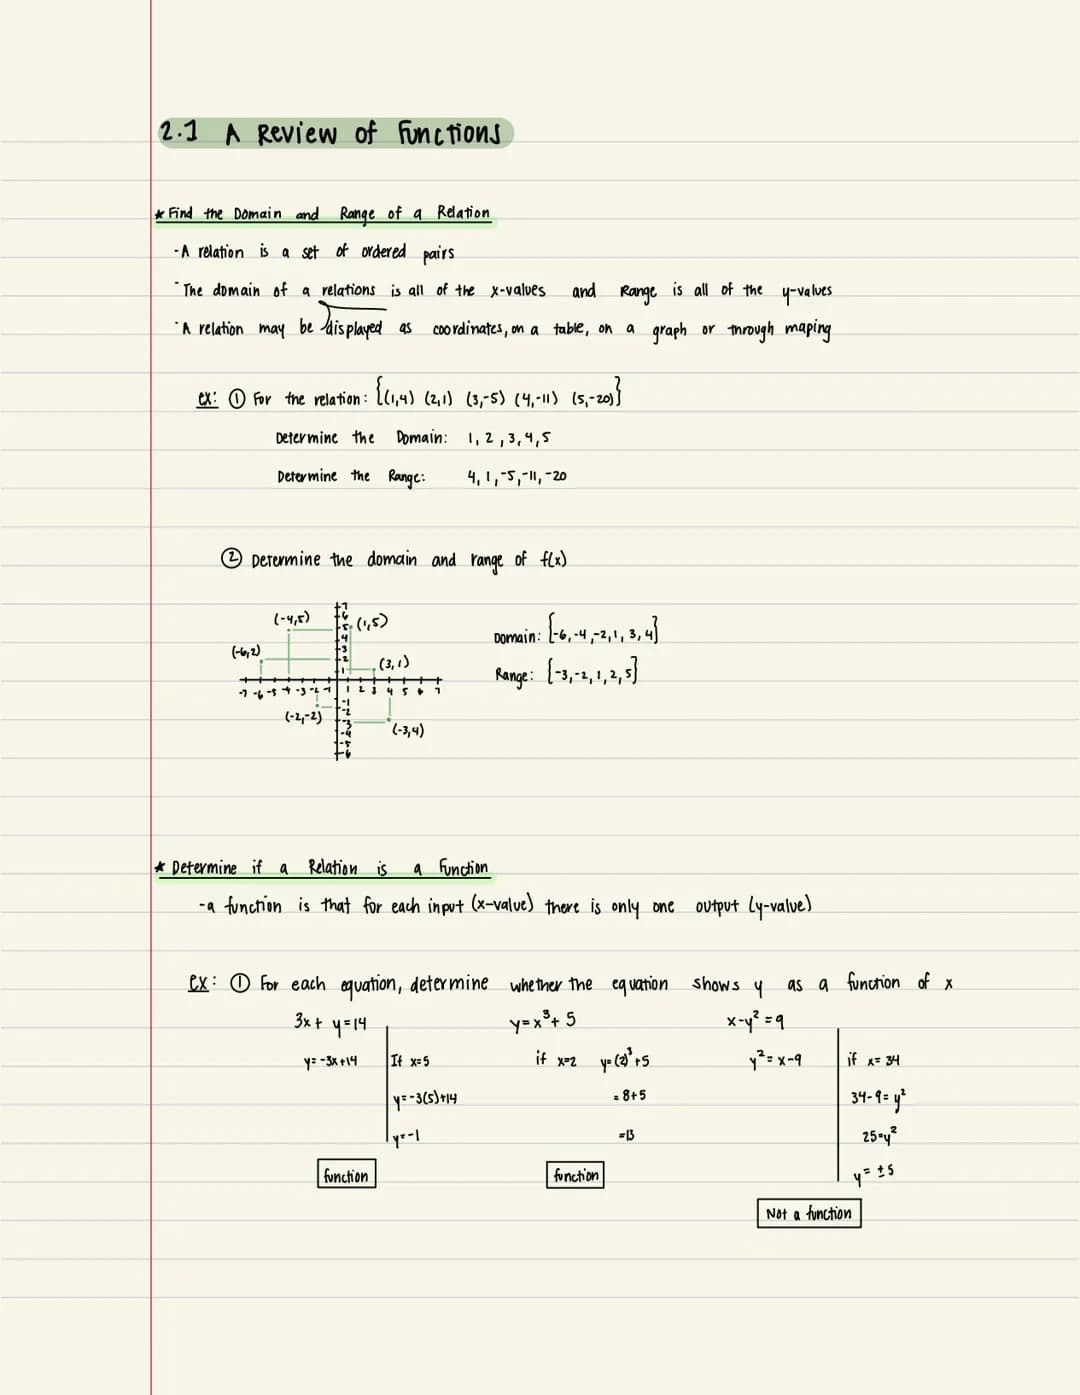 2.1 A Review of Functions
* Find the Domain and Range of a Relation
- A relation is a set of ordered pairs
- The domain of a relations is all of the x-values and Range is all of the y-values
- A relation may be displayed as coordinates, on a table, on a graph or through maping
ex: ① For the relation: {(1,4) (2,1) (3,-5) (4,-11) (5,-20)}
Determine the Domain: 1, 2, 3, 4, 5
Determine the Range: 4, 1, -5, -11, -20
② Determine the domain and range of f(x)
(-4,5) (1,5)
(-6,2) (3,1)
(-2,-2) (-3,4)
7
6
5
4
3
2
1
-7 -6 -5 -4 -3 -2 -1 1 2 3 4 5 6 7
-1
-2
-3
-4
-5
-6
Domain: {-6, -4, -2, 1, 3, 4}
Range: {-3, -2, 1, 2, 5}
* Determine if a Relation is a Function
- a function is that for each input (x-value) there is only one output (y-value)
ex: ① For each equation, determine whether the equation shows y as a function of x
3x + y = 14
y = -3x + 14
If x = 5
y = -3(5) + 14
y = -1
function
y = x³ + 5
if x = 2 y = (2)³ + 5
= 8 + 5
= 13
function
x - y² = 9
y² = x - 9
if x = 34
34 - 9 = y²
25 = y²
y = ±5
Not a function